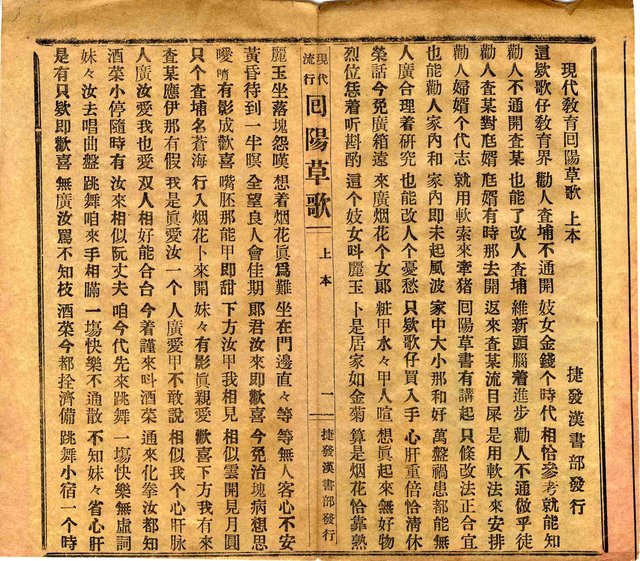 現代敎育回陽草歌 上本 捷發漢書部發行
這欵歌仔敎育界 勸人查埔不通開 妓女金錢个時代 相恰參考就能知
勸人不通開查某 也能了改人查埔 維新頭腦着進步 勸人不通做乎徒
勸人查某對尫婿 尫婿有時那去開 返來查某流目屎 是用軟法來安排
勸人婦婿个代志 就用軟索來牽猪 回陽草書有講起 只條改法正合宜
也能勸人家內和 家內即未起風波 家中大小那和好 萬盤禍患都能無
人廣合理着研究 也能改人个憂愁 只欵歌仔買入手 心肝重倍恰清休
榮話今免廣箱遠 來廣烟花个女郎 粧甲水々甲人喧 想眞起來無好物
烈位恁着听斟酌 這个妓女叫麗玉 卜是居家如金菊 算是烟花恰靠熟
現代流行 回陽草歌 上本 一 捷發漢書部發行
麗玉坐落塊怨嘆 想着烟花眞為難 坐在門邊直々等 等無人客心不安
黃昏待到一半暝 全望良人會佳期 郎君汝來即歡喜 今免治塊病想思
噯唷有影成歡喜 嘴胚那能甲即甜 下方汝甲我相見 相似雲開見月圓
只个查埔名蒼海 行入烟花卜來開 妹々有影眞親愛 歡喜下方我有來
查某應伊那有假 我是眞愛汝一个 人廣愛甲不敢說 相似我个心肝脉
人廣汝愛我也愛 双人相好能合台 今着謹來叫酒菜 通來化拳汝都知
酒菜小停隨時有 汝來相似阮丈夫 咱今代先來跳舞 一塲快樂無虛詞
妹々汝去唱曲盤 跳舞咱來手相瞞 一塲快樂不通散 不知妹々省心肝
是有只欵即歡喜 無廣汝罵不知枝 酒菜今都拴濟備 跳舞小宿一个時